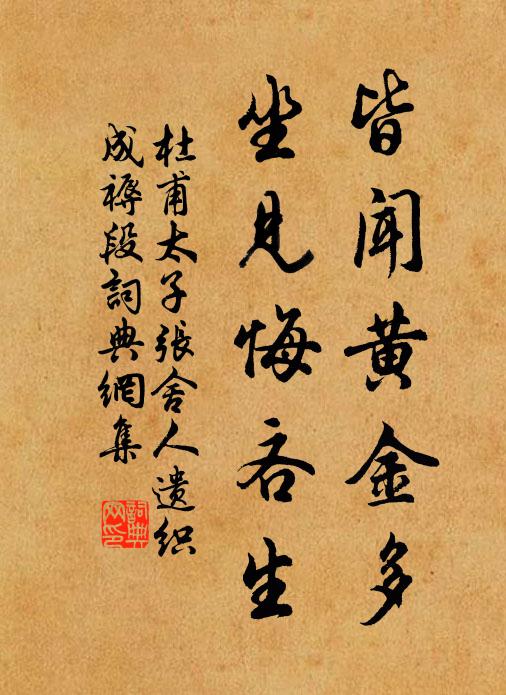 皆闻黄金多
坐见悔吝生
杜甫太子張舍人遗织
成褥段詞典網集
詞典
网印